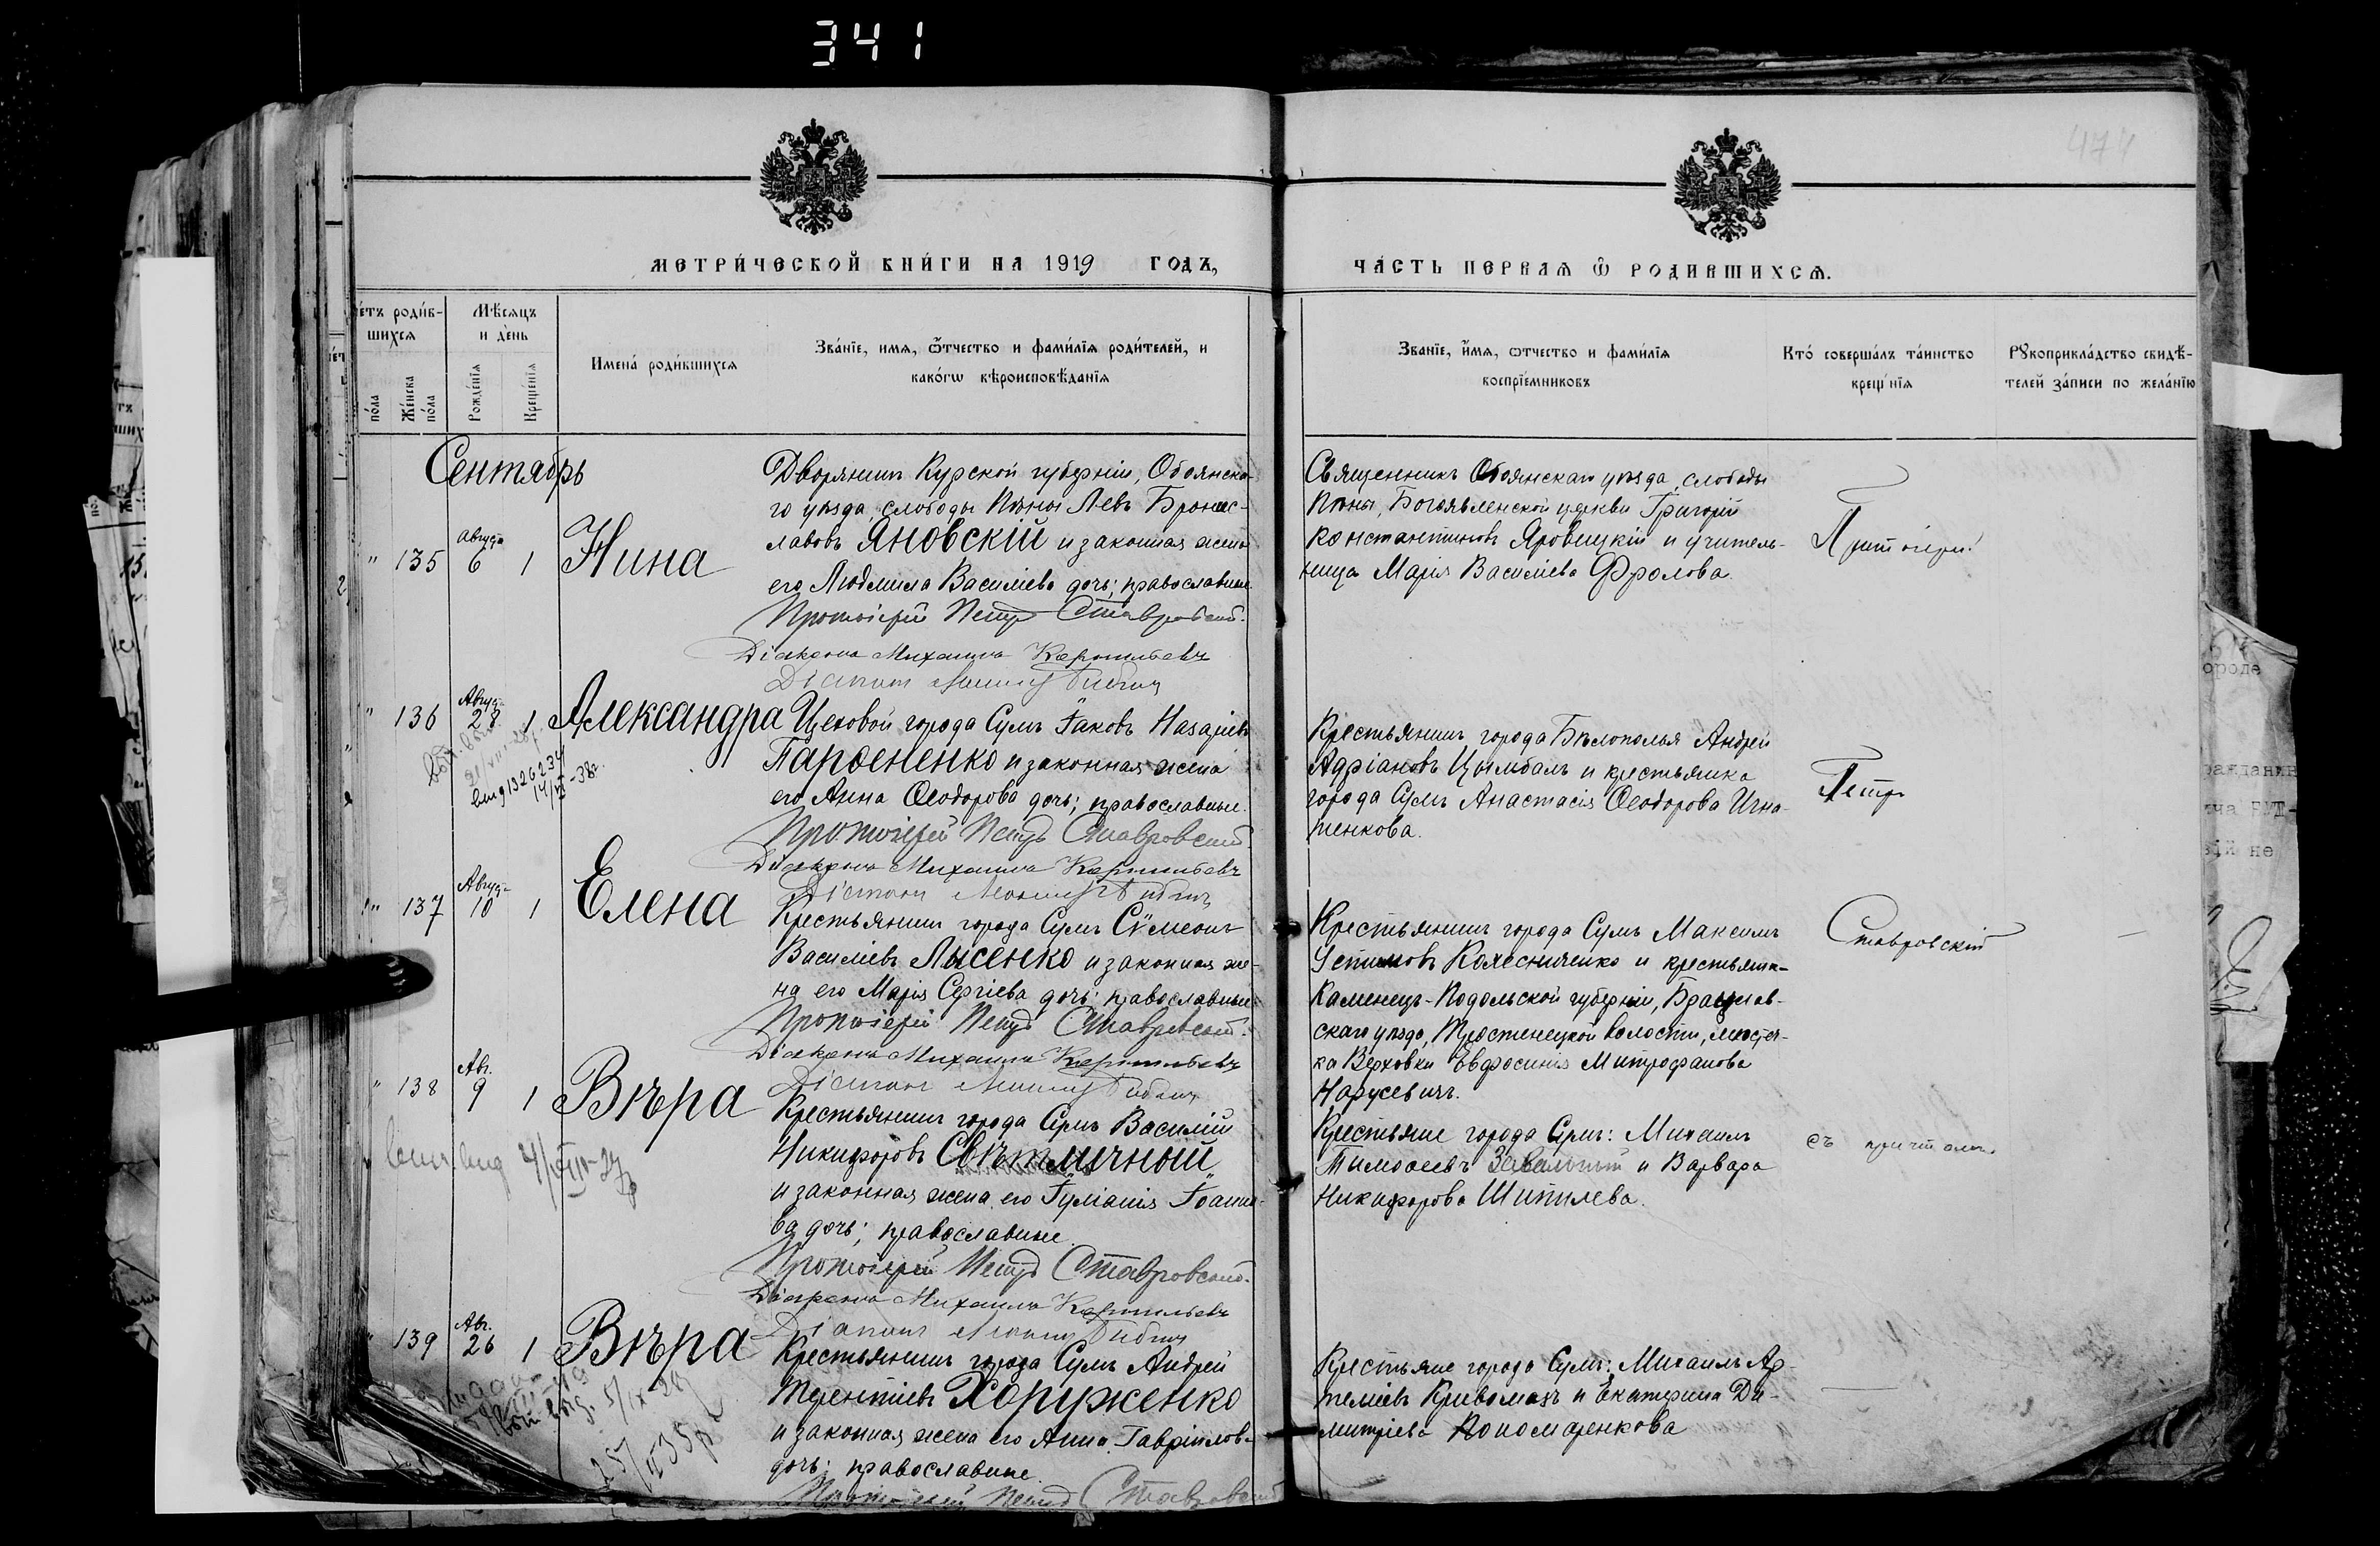 341
477
МЕТРИ́ЧЕСКОЙ КНИ́ГИ НА 1919 ГОДЪ,
ЧА́СТЬ ПЕРВАЯ Ѡ РОДИВШИХСЯ.
е́тъ роди́в-
шихся
по́ла
Же́нска
по́ла
Мѣ́сяцъ
и де́нь
Рожде́нія
Креще́нія
Имена́ роди́вшихся
Зва́нїе, имя, ѻтчество и фами́лїя роди́телей, и
како́гѡ вѣроисповѣ́данїя
Зва́нїе, и́мя, ѻтчество и фами́лїя
воспрїе́мниковъ
Кто́ соверша́лъ та́инство
креще́нїя
Рꙋкоприкла́дство свидѣ́-
телей за́писи по жела́нїю
Сентябрь
" 135
Авгус.
6 1
Нина
Дворянинъ Курской губерніи, Обоянска-
го уѣзда, слободы Пѣны Левъ Бронис-
лавовъ Яновскій и законная жена
его Людмила Василіева дочь; православные
Протоіерей Петръ Ставровскій.
Діаконъ Михаилъ
Діаконъ
Священникъ Обоянскаго уѣзда, слободы
Пѣны, Богоявленской церкви Григорій
Константиновъ Яровицкій и учитель-
ница Марія Василіева Фролова.
Протоіерей
" 136
Авгус.
28 1
Александра
Цеховой города Сумъ Іаковъ Назаріевъ
Парѳененко и законная жена
его Анна Ѳеодорова дочь; православные.
Протоіерей Петръ Ставровскій
Діаконъ Михаилъ
Діаконъ
Крестьянинъ города Бѣлополья Андрей
Адріановъ Цымбалъ и крестьянка
города Сумъ Анастасія Ѳеодорова Игна-
тенкова.
Петръ
" 137
Авгус.
10 1
Елена
Крестьянинъ города Сумъ Сѵмеонъ
Василіевъ Лысенко и законная же-
на его Марія Сергіева дочь; православные
Протоіерей Петръ Ставровскій.
Діаконъ Михаилъ
Діаконъ
Крестьянинъ города Сумъ Максимъ
Устиновъ Колесниченко и крестьянка
Каменецъ-Подольской губерніи, Брацлав-
скаго уѣзда, Тростянецкой волости, мѣстеч-
ка Верховки Евфросинія Митрофанова
Нарусевичъ.
Ставровскій
" 138
Авг.
9 1
Вѣра
Крестьянинъ города Сумъ Василій
Никифоровъ Свѣтличный
и законная жена его Іуліанія Іоанно-
ва дочь; православные.
Протоіерей Петръ Ставровскій.
Діаконъ Михаилъ
Діаконъ
Крестьяне города Сумъ: Михаилъ
Тимоѳеевъ и Варвара
Никифорова Шипилева.
съ причтомъ.
" 139
Авг.
26 1
Вѣра
Крестьянинъ города Сумъ Андрей
Терентіевъ Хоруженко
и законная жена его Анна Гавріилова
дочь; православные.
Протоіерей Петръ Ставровскій
Крестьяне города Сумъ: Михаилъ Ар-
теміевъ Кривомазъ и Екатерина Ди-
митріева Пономаренкова